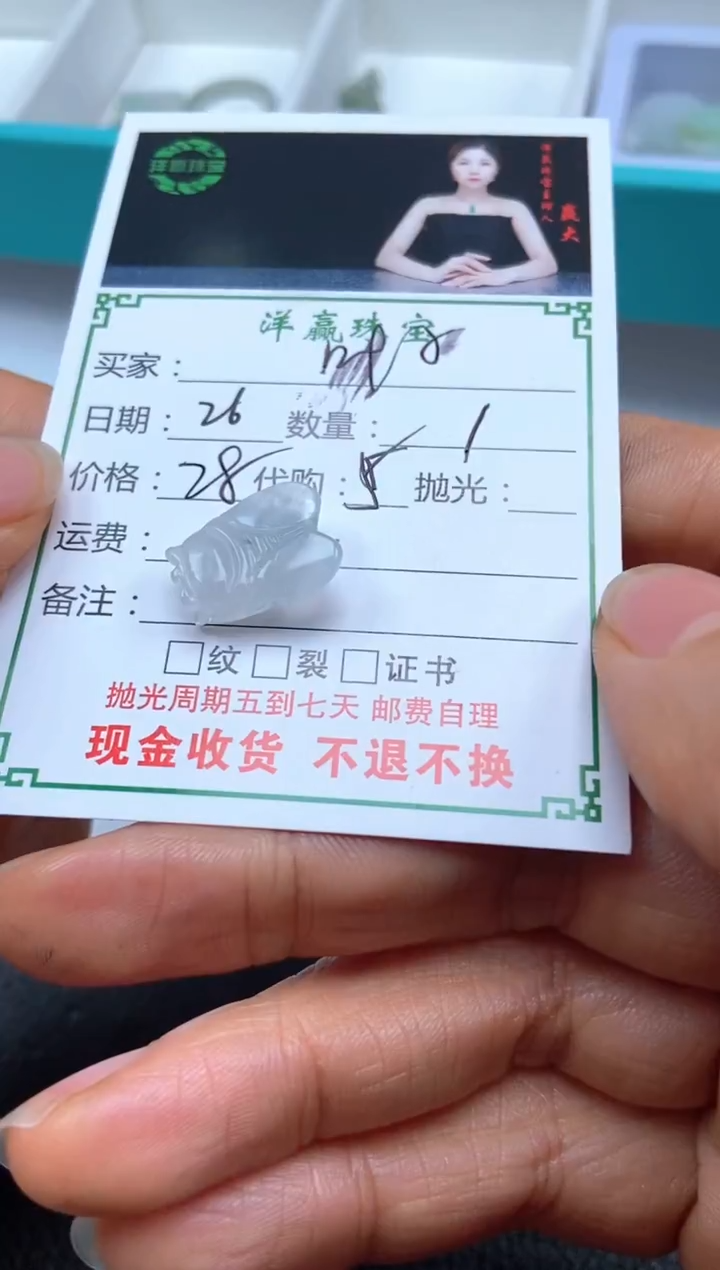 洋赢珠宝
赢大
洋赢珠宝
买家：
日期：26 数量：1
价格：28 代购：5 抛光：
运费：
备注：
□纹 □裂 □证书
抛光周期五到七天 邮费自理
现金收货 不退不换